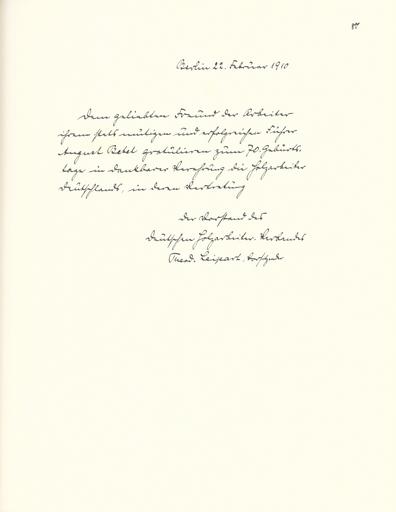 Berlin 22. Februar 1910
Dem geliebten Freund der Arbeiter
ihrem stets mutigen und erfolgreichen Führer
August Bebel gratulieren zum 70. Geburts-
tage in dankbarer Verehrung die Holzarbeiter
Deutschlands, in deren Vertretung
der Vorstand des
Deutschen Holzarbeiter-Verbandes
Theod. Leipart, Vorsitzender